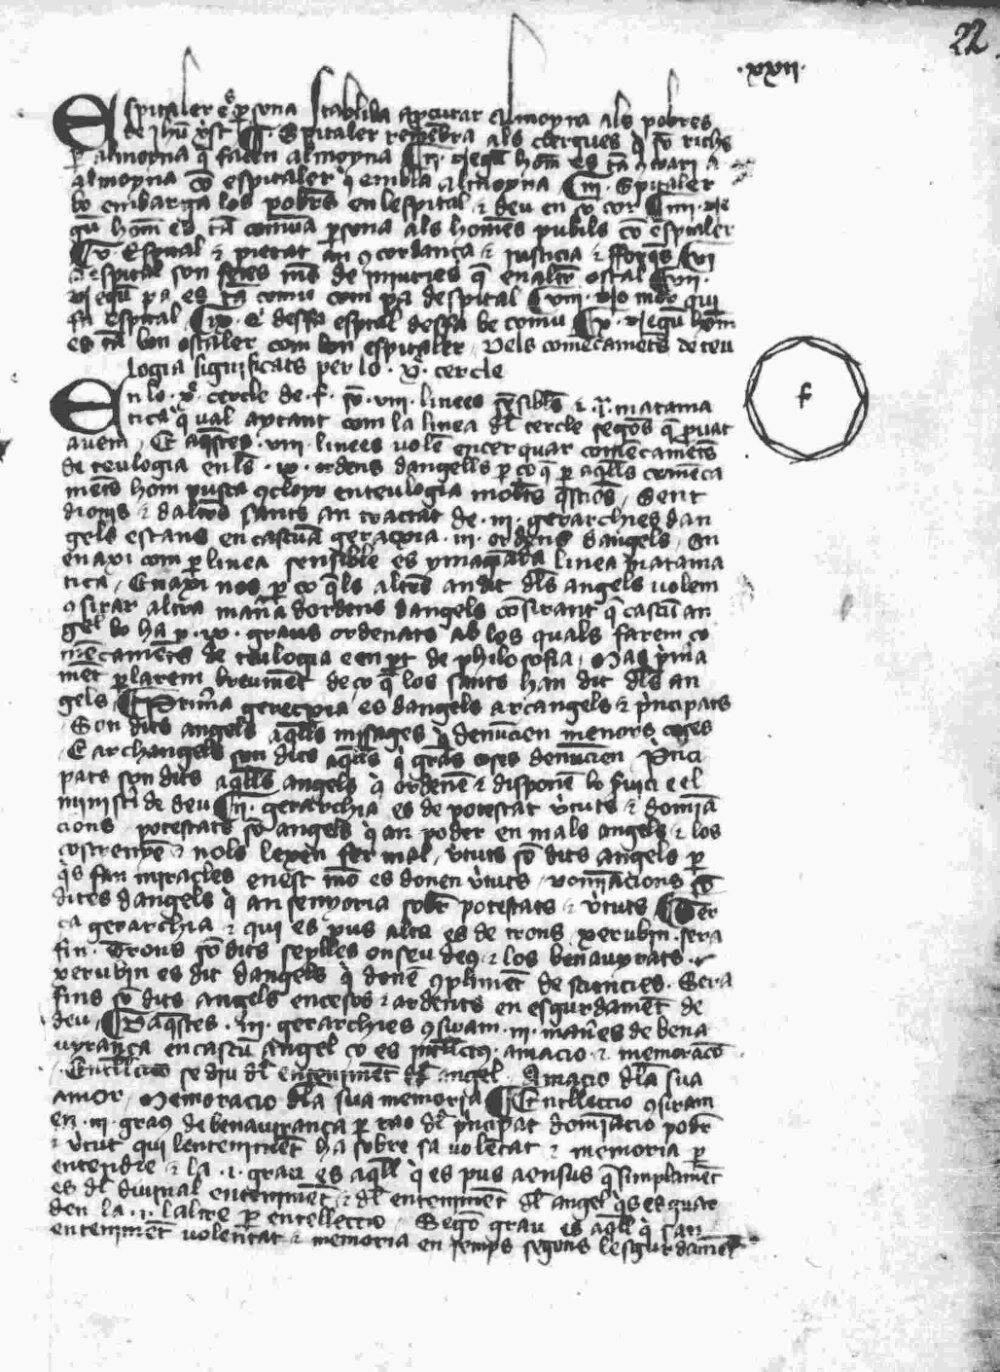 22
·xxii·
Espitaler es persona stablida a procurar almoyna als pobres
de Jhu xst ¶ Espitaler remembra als clergues q̄ so richs
p almoyna q̄ facen almoyna ¶ ii · negū hom es tā cōtrari a
almoyna cō espitaler q̄ embla almoyna ¶ iii · Spitaler
be embarga los pobres en lespital & deu en so cor ¶ iiii · ne
gū hom es tā comuna psona als homes publichs cō espitaler
¶ v · Espital & pietat an concordança & justicia & ¶ vi
despital son fetes mes de injuries q̄ en altre ostal ¶ vii ·
negū pa es tā comu com pa despital ¶ viii · No mor qui
fa espital ¶ ix · Qi desfa espital desfa be comu ¶ x · negū hom
es tā bon ostaler com bon espitaler · Dels comēcamēts de teu
logia significats per lo · x · cercle
En lo · x · cercle de · f · so · viii · linees sēsibles & · i · matama
tica q̄ val aytant com la linea dl cercle segōs q̄ prouat
auem · E aq̄stes · viii · linees volē encerquar comēcamēts
de teulogia en ls · ix · ordens dangells p ço q̄ p aq̄lls comēca
mēts hom pusca cloyr en teulogia moltes q̄stios · Sent
dionis & daltres sants an tractat de · iii · gerarchies dan
gels estans en cascuna gerarxia · iii · ordens dangels · On
en axi com p linea sensible es ymaginada linea matama
tica · En axi nos p ço q̄ ls altres an dit dls angels volem
cōsirar altra mana dordens dangels cōsirant q̄ cascū an
gel ha · ix · graus ordenats ab los quals farem co
mēcamēts de teulogia e en pt de philosofia · Mas p̄mera
mēt parlarem breumēt de ço q̄ los sants han dit dls an
gels · ¶ Primā gerarxia es dangels arcangels & p̄ncipats
Son dits angels aq̄lls missages q̄ denūcien menors coses
E archangels son dits aq̄lls q̄ grās coses denūcien · Prīci
pats son dits aq̄lls angels q̄ ordenē & disponē lo seruici e el
ministri de deu ¶ ii · gerarchia es de potestat v̄tuts & domīa
cions potestats sō angels q̄ an poder en mals angels & los
costrenyē & nols lexen fer mal · v̄tuts sō dits angels p
q̄s fan miracles en est mō es donen v̄tuts · Dominacions sō
dites dangels q̄ an senyoria sobr potestats & v̄tuts ¶ Ter
ça gerarchia & qui es pus alta es de trons xerubin · sera
fin · Trons sō dits seylles on seu deus & los benauyrats ·
xerubin es dit dangels q̄ donē cōplimēt de sciencies · Sera
fins sō dits angels encesos & ardents en esgurdamēt de
deu · ¶ Daq̄stes · iii · gerarchies cōsiram · iii · manēs de bena
uyrança en cascū angel ço es intellecio · amacio & memoracio ·
Entelleccio se diu dl entenimēt dl angel · Amacio dla sua
amor · Memoracio dla sua memoria ¶ Entelleccio cōsiram
en · iii · graus de benauirança per rao dl p̄ncipat domīacio poder
& v̄tut qui lentenimēt ha sobre sa volētat & memoria p
entendre & la · i · grau es aq̄ll q̄ es pus a ensus q̄ simplamēt
es dl diuinal entenimēt & dl entenimēt dl angel q̄s esguar
den la · i · laltre p entelleccio · Segō grau es aq̄ll q̄ san
entenimēt volentat & memoria en temps segons lesgurdamēt
f